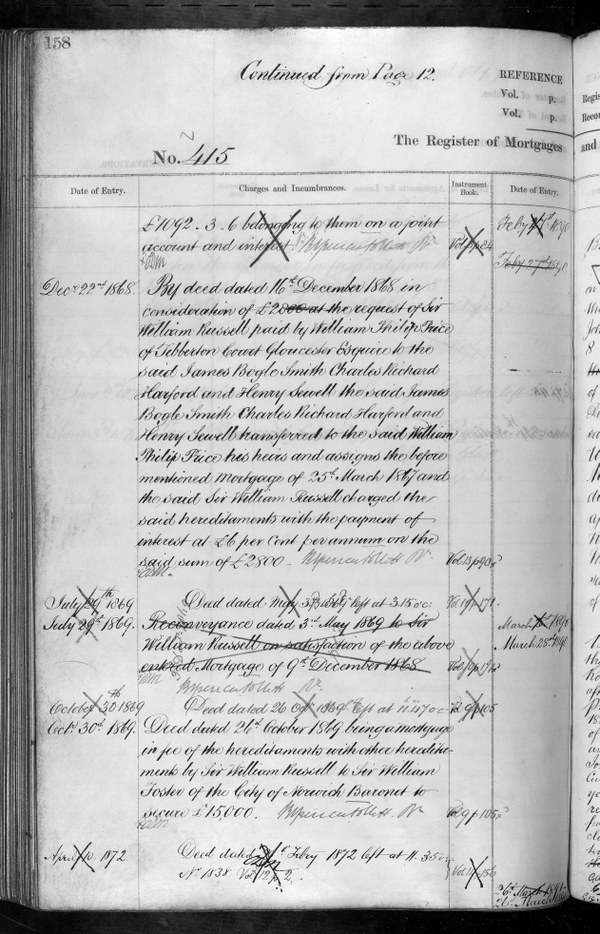 158
Continued from Page 12.
REFERENCE
Vol. p.
Vol. p.
The Register of Mortgages
No. 415
Date of Entry.
Charges and Incumbrances.
Instrument Book.
Date of Entry.
£1092 - 3 - 6 belonging to them on a joint
account and interest
Feby 27th 1890
Decr 22nd 1868.
By deed dated 16th December 1868 in
consideration of £2800 at the request of Sir
William Russell paid by William Philip Price
of Tibberton Court Gloucester Esquire to the
said James Bogle Smith Charles Richard
Harford and Henry Sewell the said James
Bogle Smith Charles Richard Harford and
Henry Sewell transferred to the said William
Philip Price his heirs and assigns the before
mentioned Mortgage of 25th March 1867 and
the said Sir William Russell charged the
said hereditaments with the payment of
interest at £6 per Cent per annum on the
said sum of £2800 -
July 29th 1869
Deed dated May 3rd 1869 left at 3.15 oc:
July 29th 1869.
Reconveyance dated 3rd May 1869 to Sir
William Russell on satisfaction of the above
entered Mortgage of 9th December 1868
March 28th 1890
October 30th 1869
Deed dated 26 Octr 1869 left at 11.47 oc
Vol. 9 p 105
Octr 30th 1869.
Deed dated 26th October 1869 being a mortgage
in fee of the hereditaments with other heredita-
ments by Sir William Russell to Sir William
Foster of the City of Norwich Baronet to
secure £15,000.
Vol. 9 p 105
1872
Deed dated Febry 1872 left at 11.35 oc
No 1838 Vol 12 p 2.
26th March